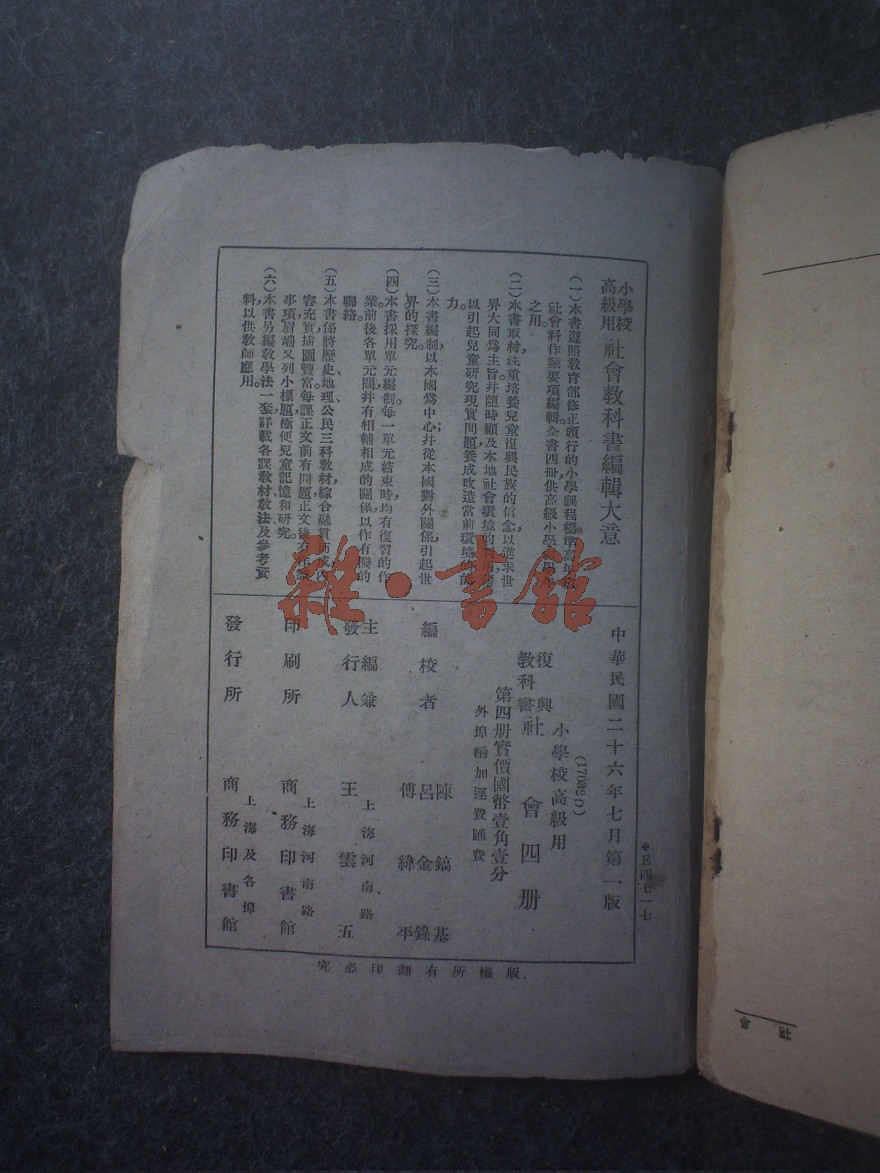 小學校
高級用
社會教科書編輯大意
(一)本書遵照教育部修正頒行的小學課程標準高年級
社會科作業要項編輯全書四冊供高級小學
之用。
(二)本書取材注重培養兒童復興民族的信念以進求世
界大同爲主旨幷隨時顧及本地社會環境的
以引起兒童研究現實問題養成改造當前環境的能
力。
(三)本書編制以本國爲中心;幷從本國對外關係引起世
界的探究。
(四)本書採用單元編制。每一單元結束時均有復習的作
業前後各單元間幷有相輔相成的關係以作有機的
聯絡。
(五)本書係將歷史、地理、公民三科教材,綜合融貫而成內
容充實插圖豐富。每課正文前有問題正文後有作業
事項眉端又列小標題極便兒童記憶和研究。
(六)本書另編教學法一套,詳載各課教材、教法、及參考資
料,以供教師應用。
中華民國二十六年七月第一版
(17082D)
小學校高級用
復興
教科書
社會四册
第四册實價國幣壹角壹分
外埠酌加運費匯費
編校者
陳鎬基
呂金錄
傅緯平
主編兼
發行人
上海河南路
王雲五
印刷所
上海河南路
商務印書館
發行所
上海及各埠
商務印書館
版權所有翻印必究
*E四七一七
社會
雜·書館